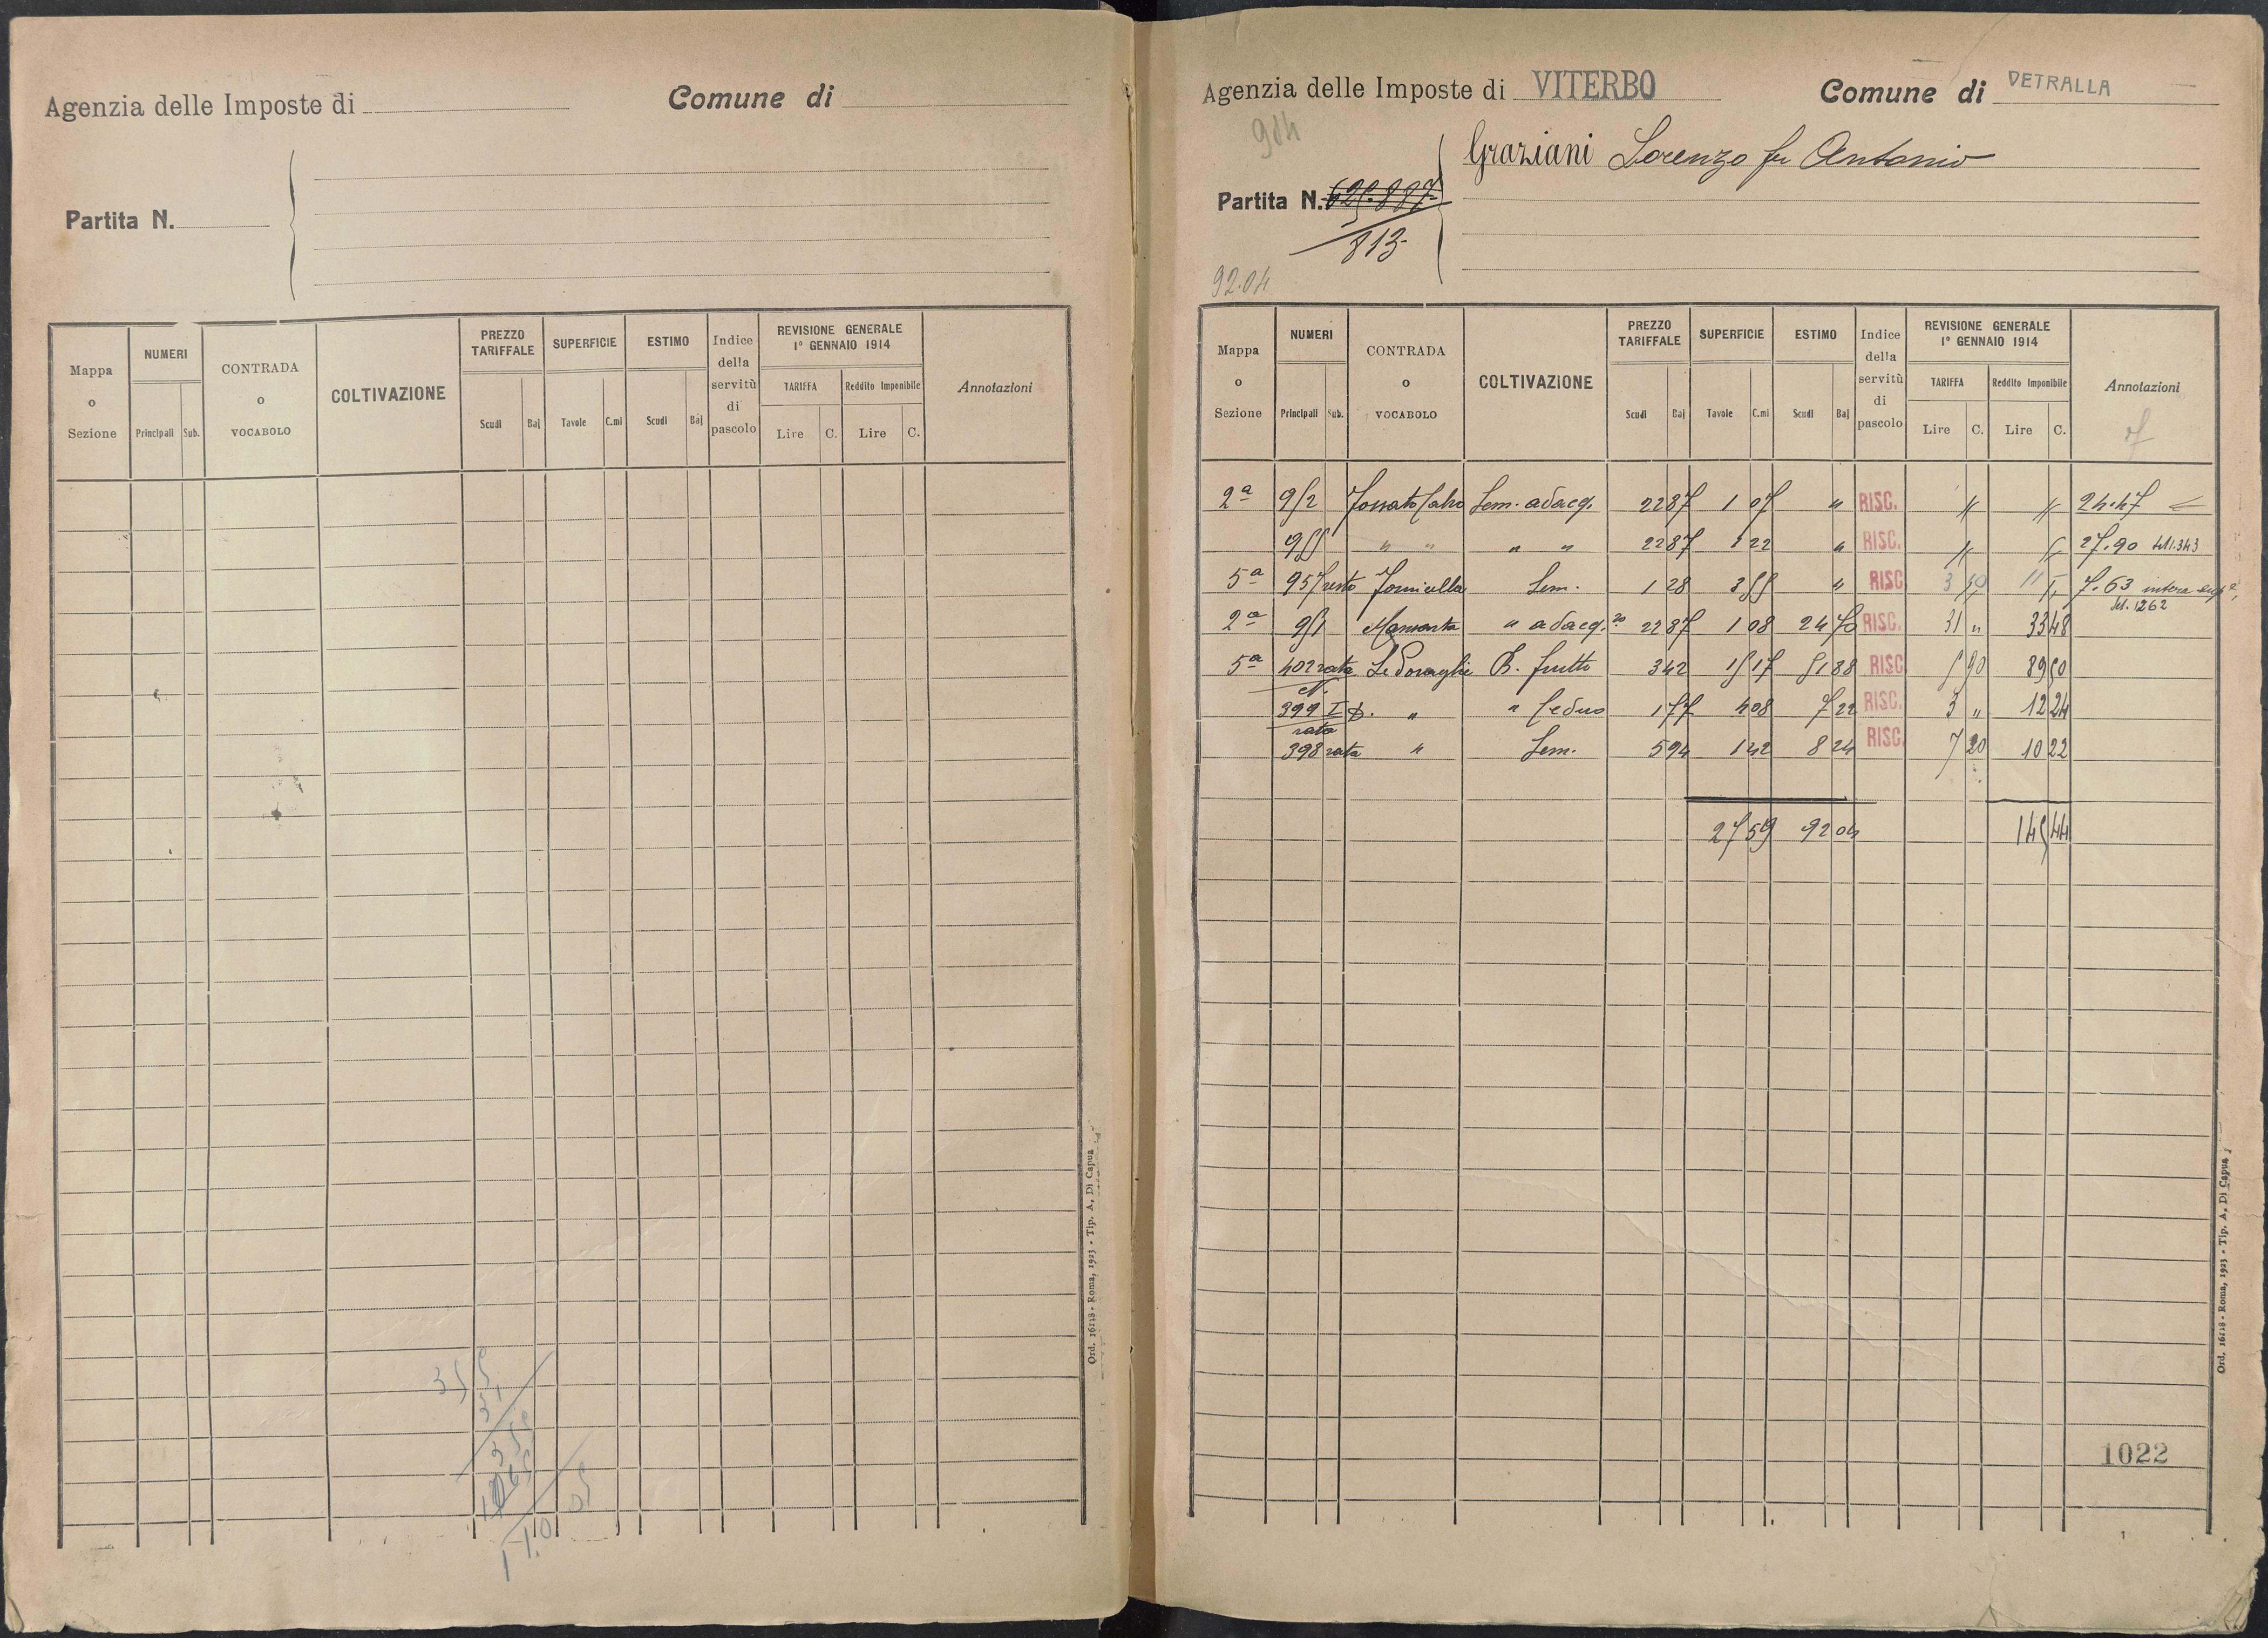 Agenzia delle Imposte di
Comune di
Partita N.
Mappa o Sezione
NUMERI
Principali Sub.
CONTRADA o VOCABOLO
COLTIVAZIONE
PREZZO TARIFFALE
Scudi Baj
SUPERFICIE
Tavole C.mi
ESTIMO
Scudi Baj
Indice della servitù di pascolo
REVISIONE GENERALE 1° GENNAIO 1914
TARIFFA Reddito Imponibile
Lire C. Lire C.
Annotazioni
Ord. 16118 - Roma, 1923 - Tip. A. Di Capua
Agenzia delle Imposte di VITERBO
Comune di VETRALLA
984
Graziani Lorenzo fu Antonio
Partita N.
813
92.04
Mappa o Sezione
NUMERI
Principali Sub.
CONTRADA o VOCABOLO
COLTIVAZIONE
PREZZO TARIFFALE
Scudi Baj
SUPERFICIE
Tavole C.mi
ESTIMO
Scudi Baj
Indice della servitù di pascolo
REVISIONE GENERALE 1° GENNAIO 1914
TARIFFA Reddito Imponibile
Lire C. Lire C.
Annotazioni
2ª 952 Sem. adacq. 22 87 1 07 " RISC. " " 24.47
955 " " " " 22 87 1 22 " RISC. " " 27.90
5ª 957 resto Sem. 1 28 3 55 " RISC 7.63 intera
2ª 951 " adacq. 22 87 1 08 24 70 RISC. 31 " 33 48
5ª 402 rata B. frutto 3 42 15 17 51 88 RISC 5 90 89 50
399 I rata " " Ceduo 1 77 4 08 7 22 RISC. 3 " 12 24
398 rata " Sem. 5 94 1 42 8 24 RISC. 7 20 10 22
27 59 92 04 145 44
1022
Ord. 16118 - Roma, 1923 - Tip. A. Di Capua